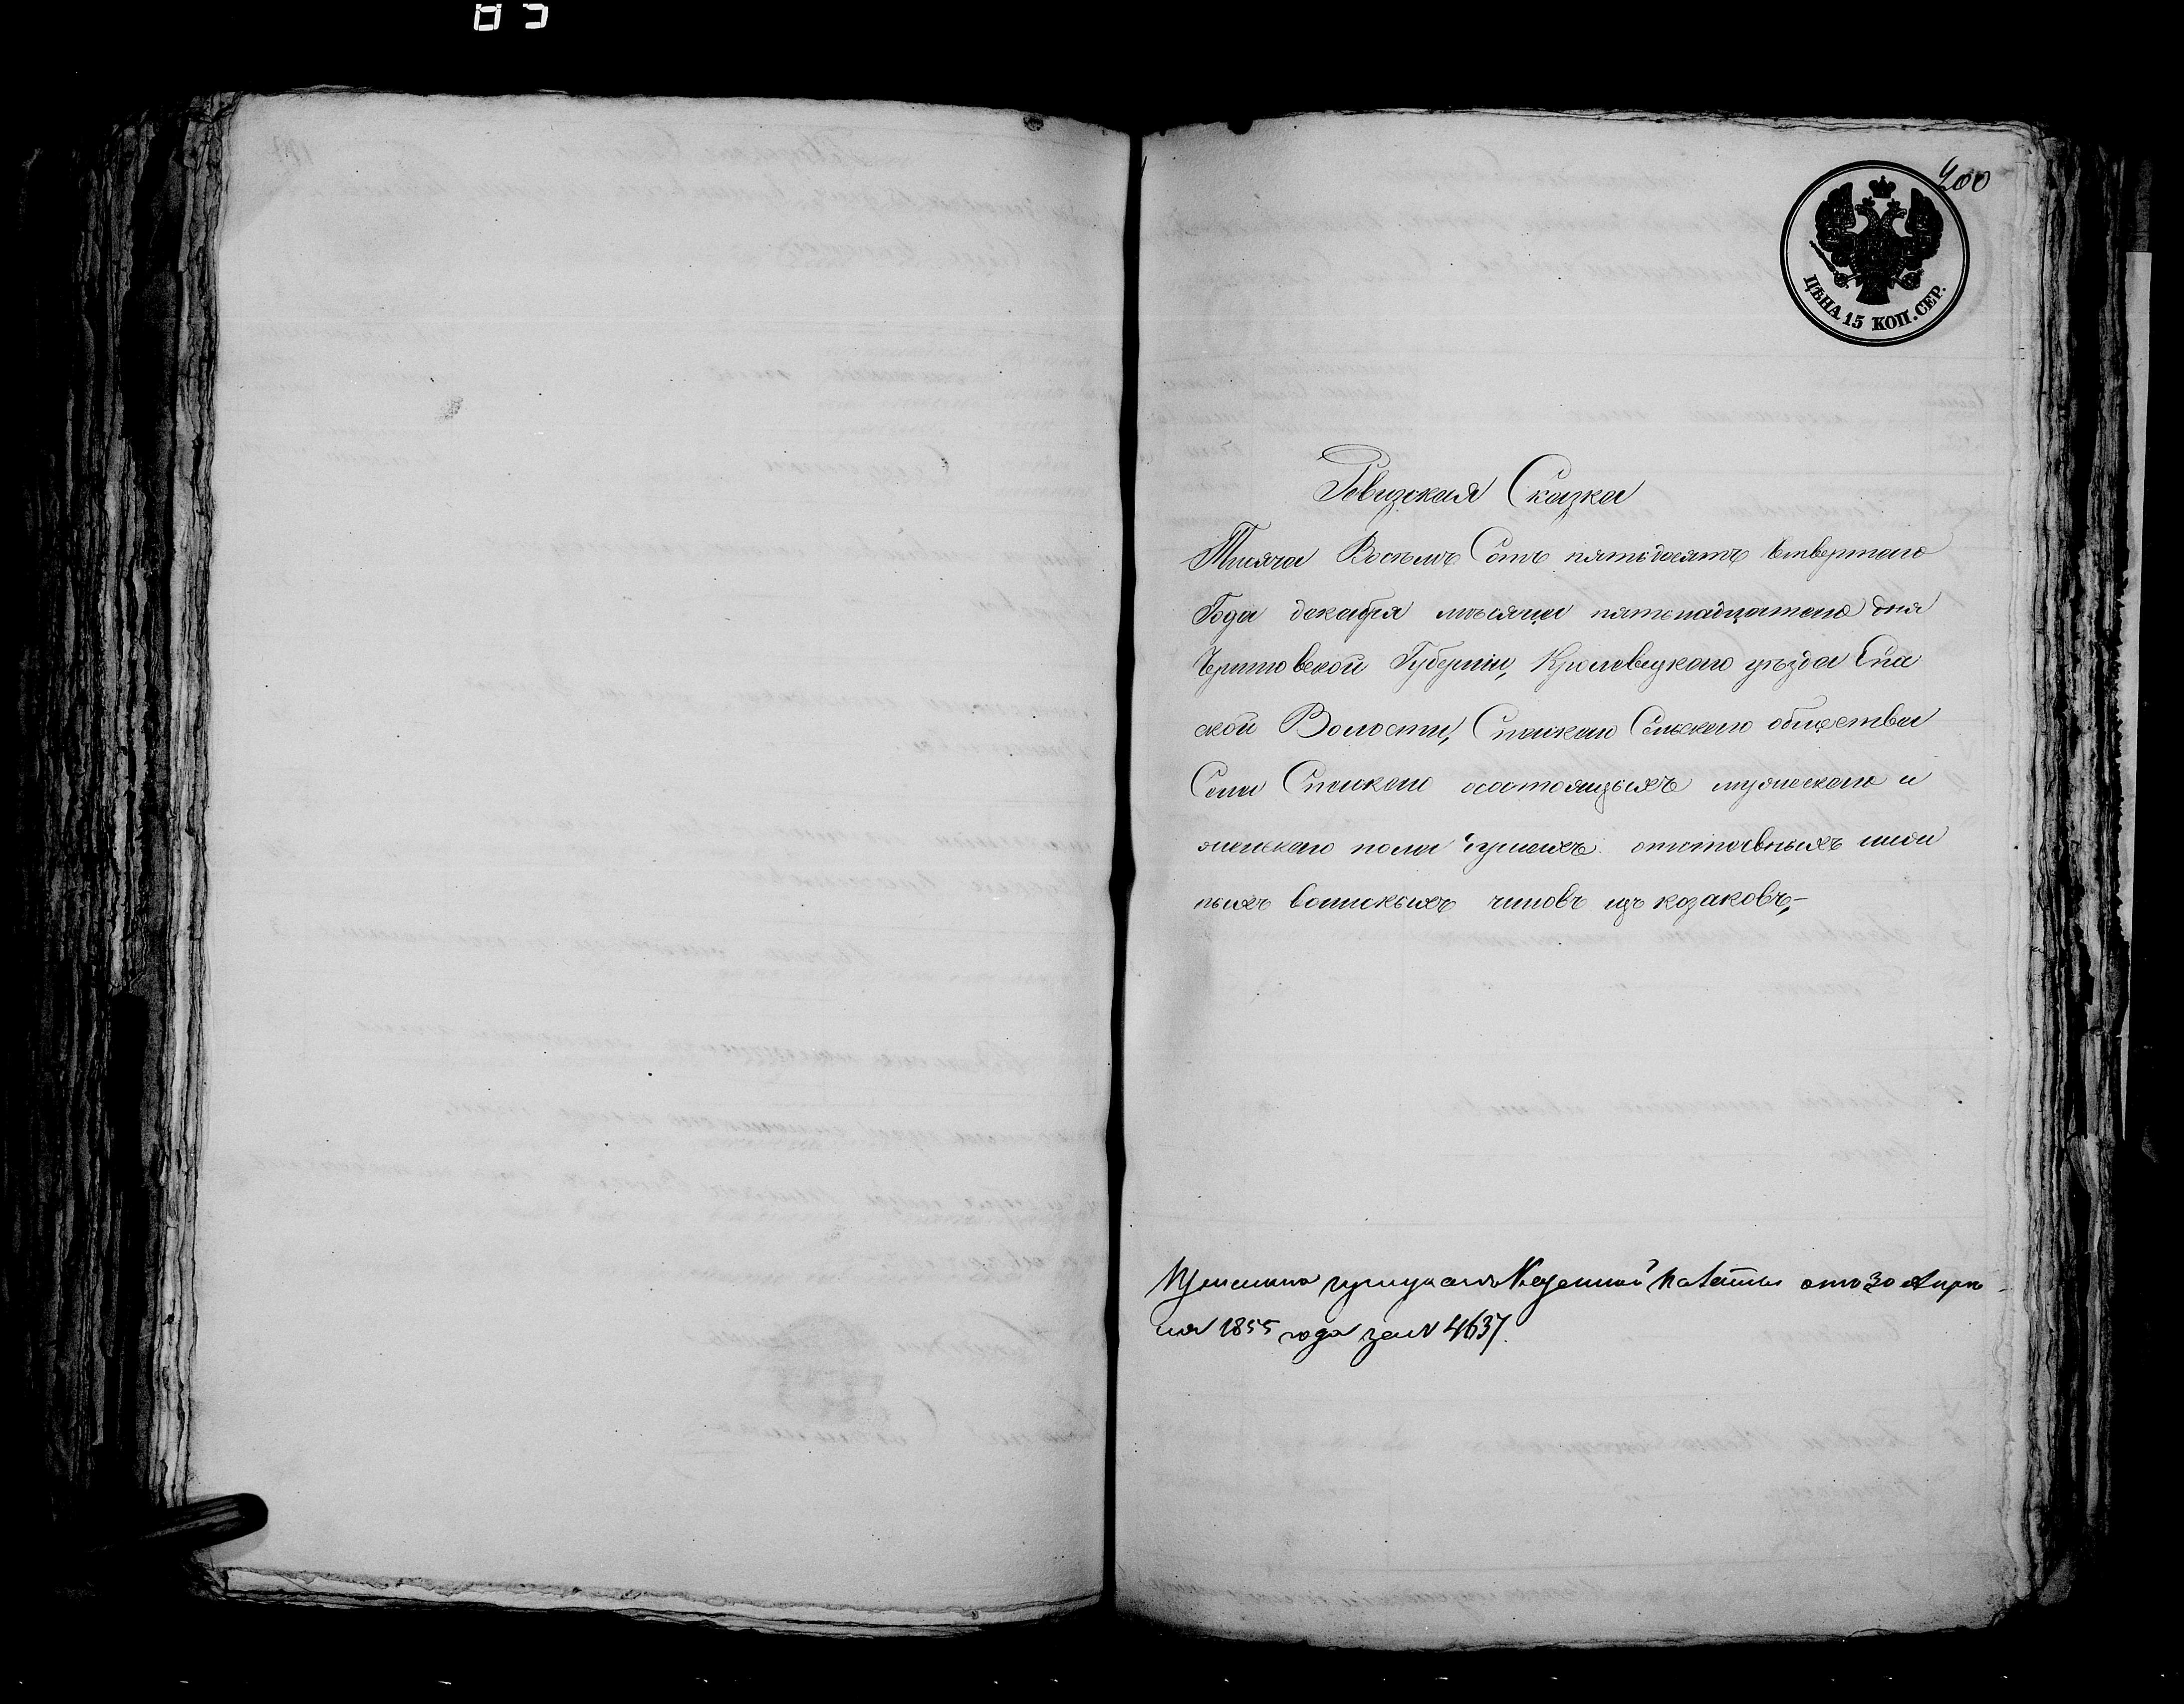 200
ЦѢНА 15 КОП. СЕР.
Ревизская Сказка
Тысяча Восемь Сотъ пятьдесятъ Четвертаго
Года декабря мѣсяца пятьнадцатаго дня
Черниговской Губерніи, Кролевецкаго уѣзда Спа
ской Волости, Спаскаго Сельскаго общества
Села Спаскаго о состоящихъ мужескаго и
женскаго пола душахъ отставныхъ
нихъ воинскихъ чиновъ изъ козаковъ,—
Казенной Палаты отъ 30 Апре
ля 1855 года за № 4637.